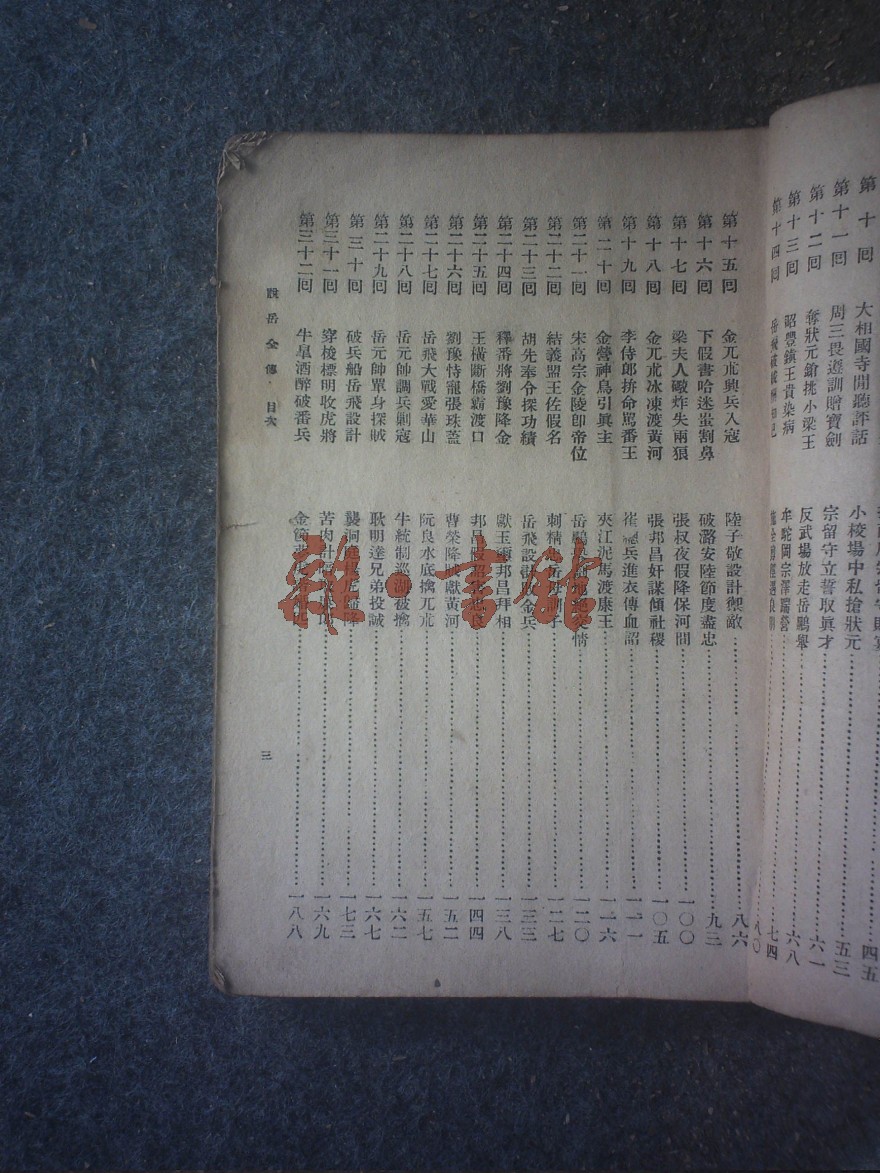 第十回 大相國寺閒聽評話 小校場中私搶狀元 四五
第十一回 周三畏遵訓贈寶劍 宗留守立誓取眞才 五三
第十二回 奪狀元鎗挑小梁王 反武場放走岳鵬舉 六一
第十三回 昭豐鎭王貴染病 牟駝岡宗澤踹營 六八
第十四回 岳飛破賊 七四
八〇
第十五回 金兀朮興兵入寇 陸子敬設計禦敵 八六
第十六回 下假書哈迷蚩割鼻 破潞安陸節度盡忠 九三
第十七回 梁夫人礮炸失兩狼 張叔夜假降保河間 一〇〇
第十八回 金兀朮冰凍渡黃河 張邦昌奸謀傾社稷 一〇五
第十九回 李侍郎拚命罵番王 崔總兵進衣傳血詔 一一一
第二十回 金營神鳥引眞主 夾江泥馬渡康王 一一六
第二十一回 宋高宗金陵卽帝位 岳鵬舉 情 一二〇
第二十二回 結義盟王佐假名 刺精忠岳母訓子 一二七
第二十三回 胡先奉令探功績 岳飛設 金兵 一三三
第二十四回 釋番將劉豫降金 獻玉璽邦昌拜相 一三八
第二十五回 王橫斷橋霸渡口 邦昌假詔 良 一四四
第二十六回 劉豫恃寵張珠蓋 曹榮降賊獻黃河 一五二
第二十七回 岳飛大戰愛華山 阮良水底擒兀朮 一五七
第二十八回 岳元帥調兵剿寇 牛統制巡湖被擒 一六二
第二十九回 岳元帥單身探賊 耿明達兄弟投誠 一六七
第三十回 破兵船岳飛設計 襲洞庭 一七三
第三十一回 穿梭標明收虎將 苦肉計 一六九
第三十二回 牛皐酒醉破番兵 金節 一八八
說岳全傳 目次
三
雜·書館